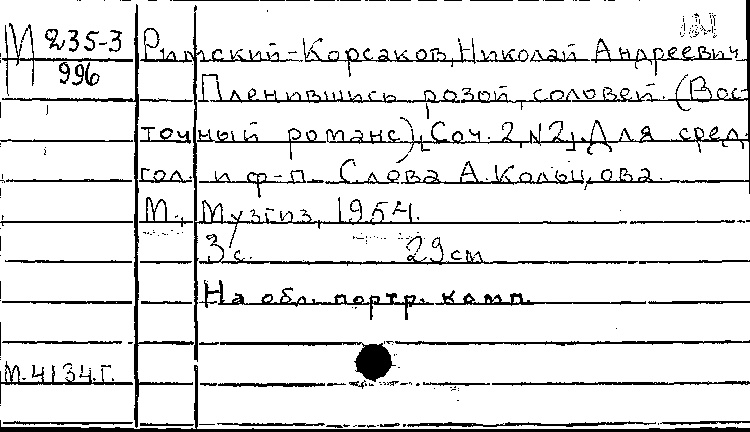 М 235-3
996
Римский-Корсаков, Николай Андреевич
Пленившись розой, соловей. (Вос-
точный романс), [Соч. 2, N2]. Для сред.
гол. и ф-п. Слова А. Кольцова.
М., Музгиз, 1954.
3 с. 29 см
На обл. портр. комп.
М.4134.Г.